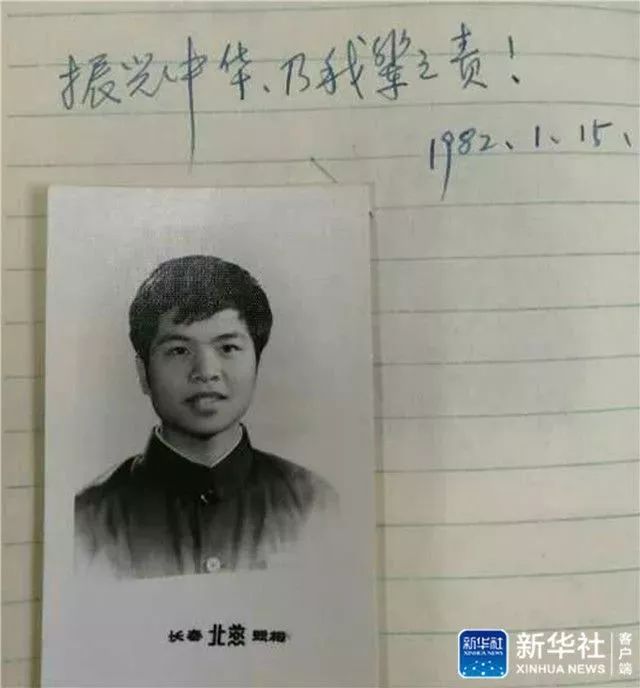 振兴中华、乃我辈之责!
1982、1、15、
长春 北燕 照相
新华社
XINHUA NEWS
新华社
XINHUA NEWS
客户端